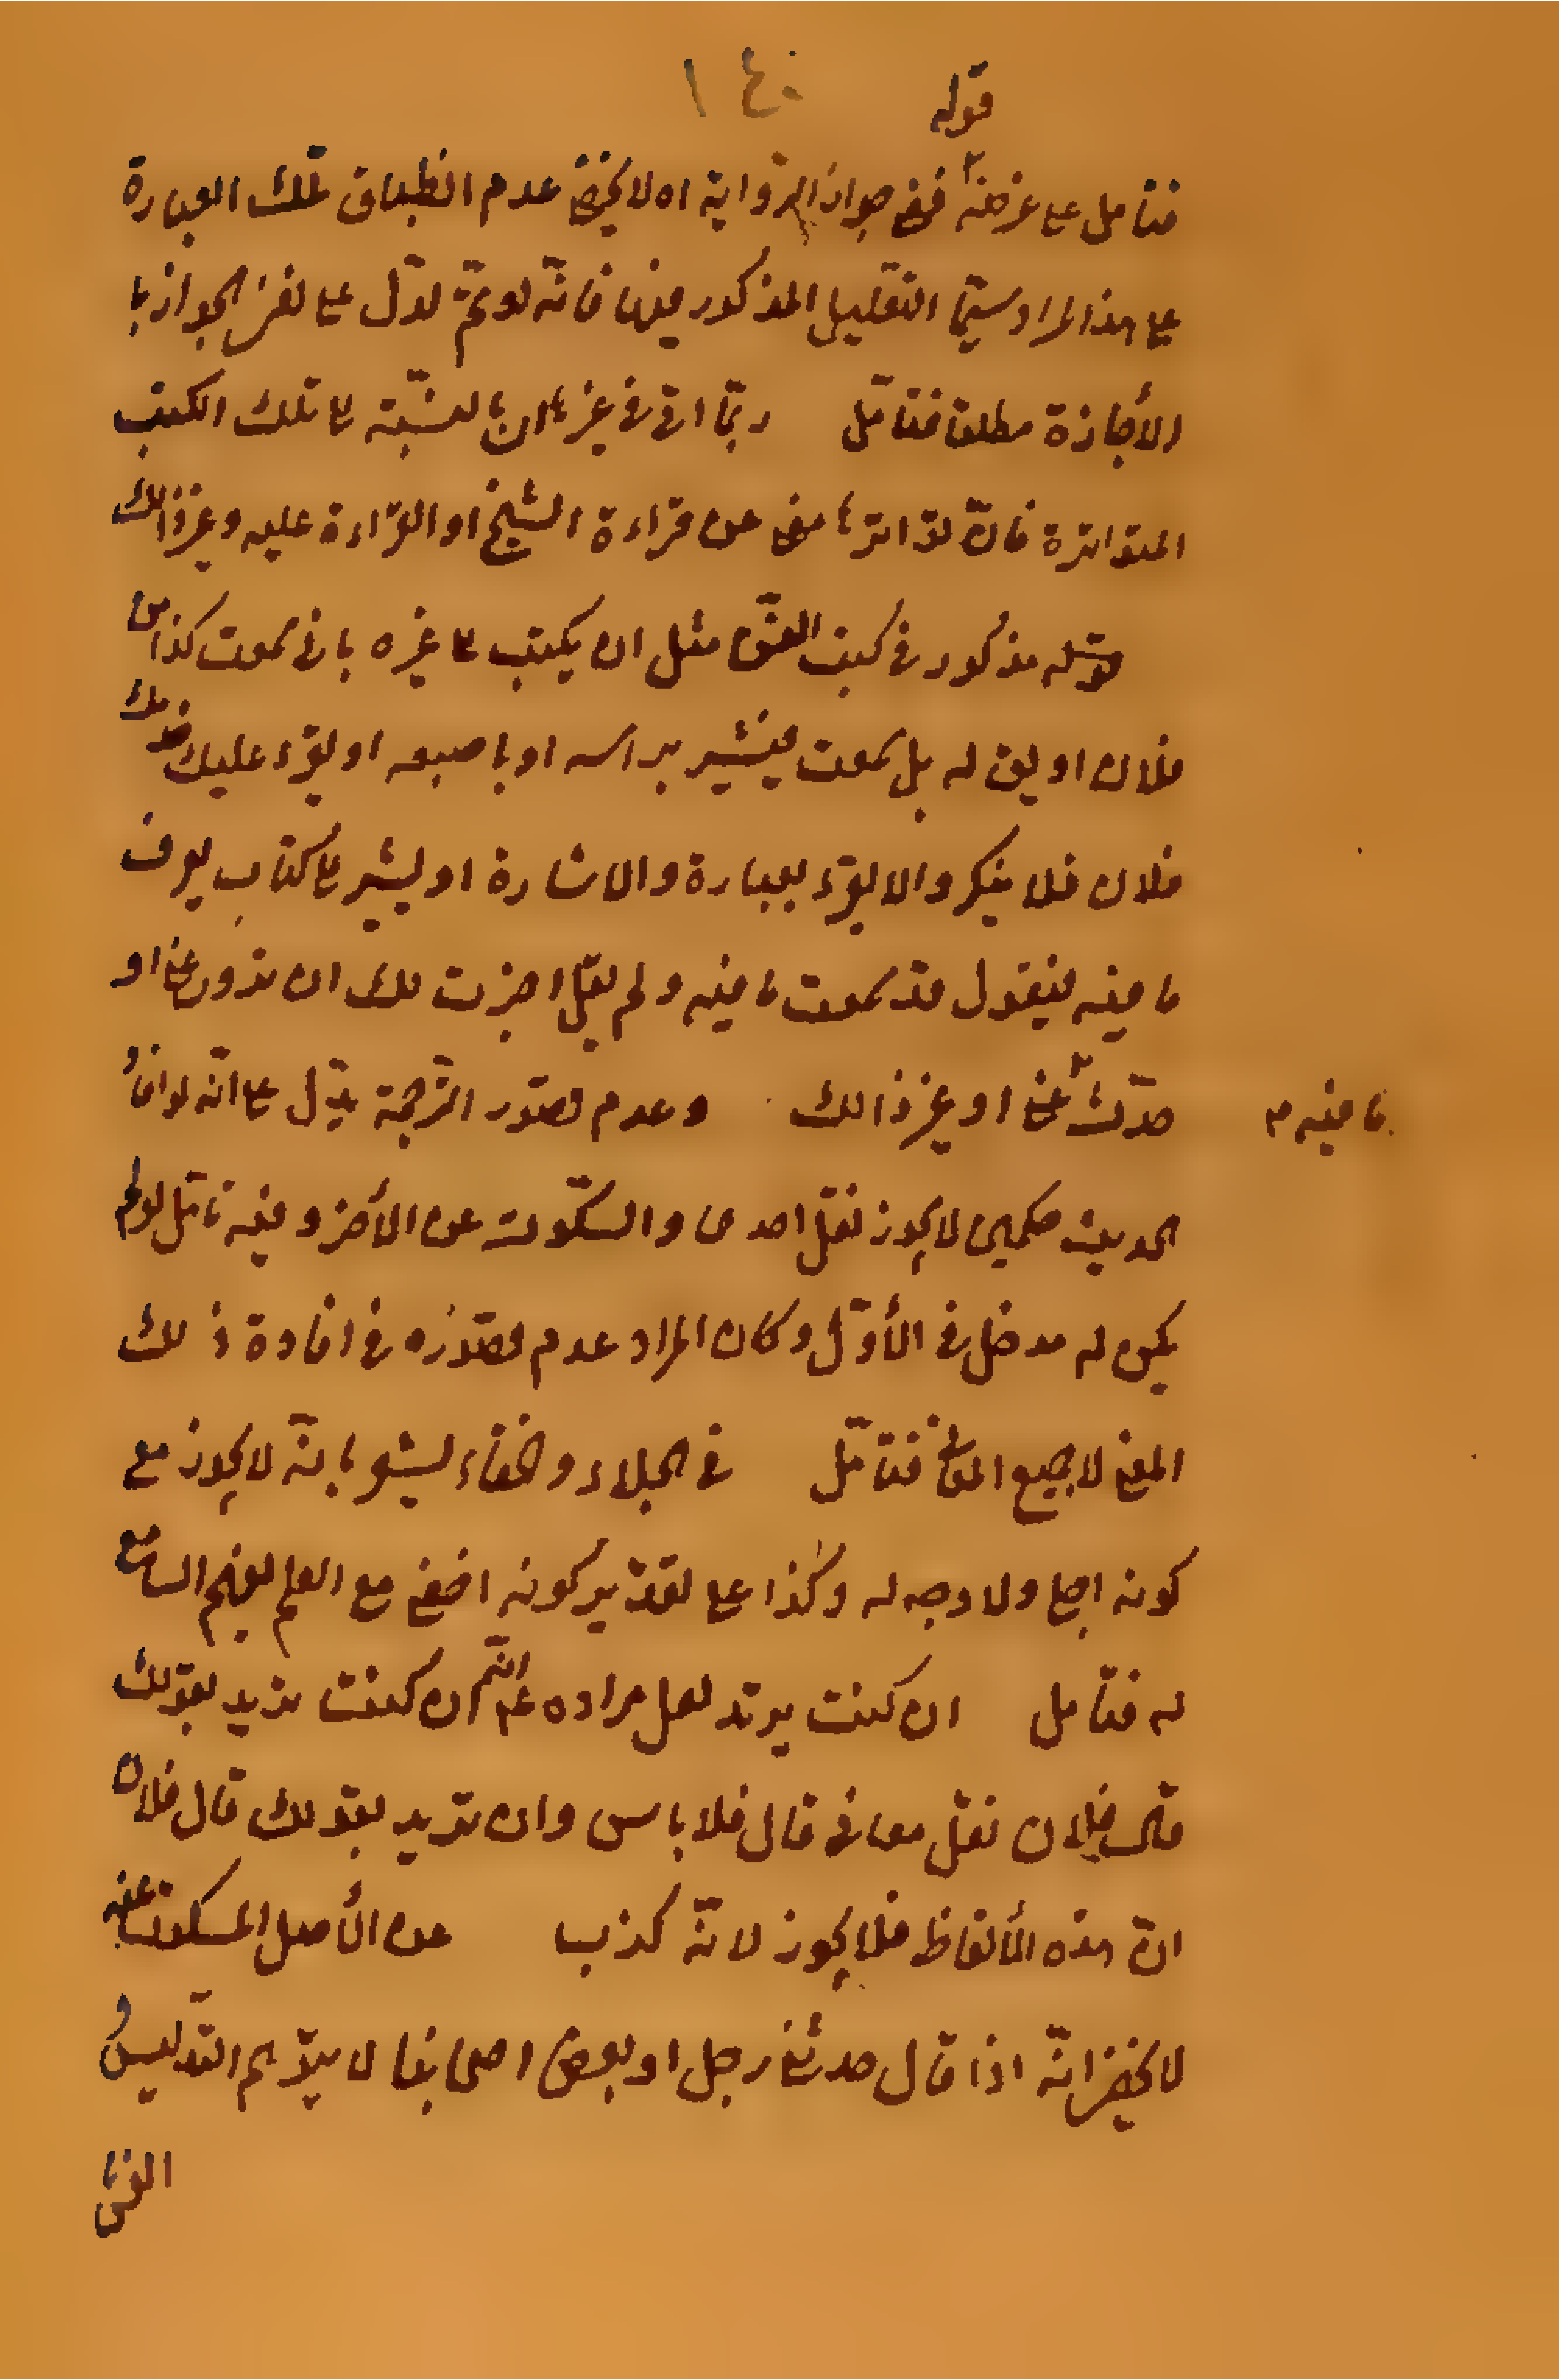 ١٤٠
قوله
فتأمل على غرضنا ففى جواز الرّواية اه لا يخفى عدم انطباق تلك العبارة
على هذا المراد سيّما التعليل المذكور فيها فانّه لو تمّ لدّل على نفى الجواز با
الأجازة مطلقا فتأمّل ربّما اق فى غيرها ان بالنسّبة الى تلك الكتب
المتواترة فانّ تواترها مغن عن قراءة الشيخ او القرّاءة عليه وغير ذالك
قوله مذكور فى كتب الفنّ مثل ان يكتب الى غيره بانى سمعت كذا من
فلان او يق له هل سمعت فيشير براسه او باصبعه او يقرء عليك حدثك
فلان فلا ينكر والا يقرء بعبارة والاشارة او يشير الى كتاب يعرف
ما فيه فيقول قد سمعت ما فيه ولم يقل اجزت لك ان تروى عنى او
حدّث عنى او غير ذالك وعدم تصوّر الترّجمة يدّل على انّه لو افا
ما فيه م
الحديث حكمين لا يجوز نقل احدهما والسكّوت عن الأخر وفيه تأمّل لو لم
يكن له مدخل فى الأوّل وكان المراد عدم قصوره فى افادة ذلك
المعنى لا جميع المعانى فتأمّل فى الجلاء والخفاء يشعر بانّه لا يجوز مع
كونه اجلى ولا وجه له وكذا على تقدير كونه اخفى مع العلم بفهم السامع
له فتأمل ان كنت يرتد لعل مراده عم انّه ان كنت تريد بقولك
قال فلان نقل معانى قال فلا باس وان تريد بقولك قال فلان
انّ هذه الألفاظ فلا يجوز لانّه كذب عن الأصل المسكوت عنه
لا يخفى انّه اذا قال حدثنى رجل او بعض اصحابنا لا يتوّهم التدّليس و